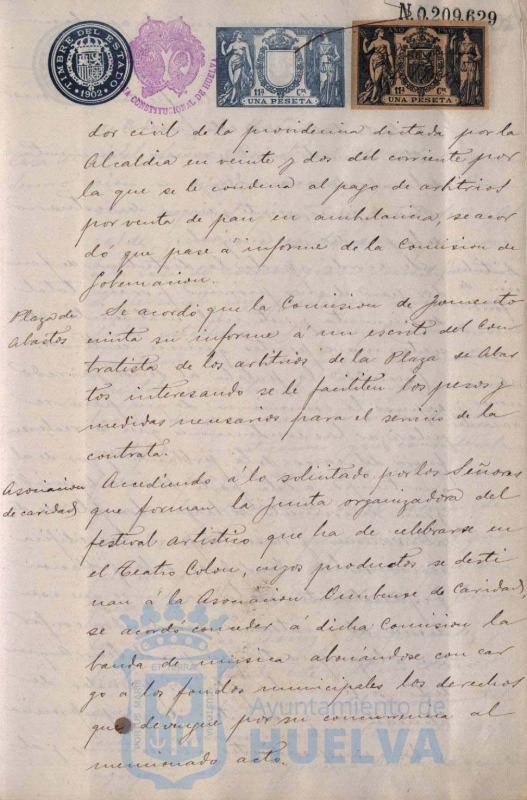 Nº 0.209.629
TIMBRE DEL ESTADO
1902
CONSTITUCIONAL DE HUELVA
11ª Cª
UNA PESETA
11ª Cª
UNA PESETA
dor civil de la providencina dictada por la
Alcaldia en veinte y dos del corriente por
la que se le condena al pago de arbitrios
por venta de pan en ambulancia, se acor
dó que pase á informe de la Comision de
Gobernacion.
Plaza de
Abastos
Se acordó que la Comision de Fomento
emita su informe á un escrito del Con
tratista de los arbitrios de la Plaza de Abas
tos interesando se le faciliten los pesos y
medidas necesarios para el servicio de la
contrata.
Asociacion
de caridad
Accediendo á lo solicitado por los Señores
que forman la Junta organizadora del
festival artistico que ha de celebrarse en
el Teatro Colon, cuyos productos se desti
nan á la Asociacion Onubense de Caridad,
se acordó conceder á dicha Comision la
banda de música abonándose con car
go a los fondos municipales los derechos
que devengue por su concurrencia al
mencionado acto.
PORTUS MARIS
ET TERRA
Ayuntamiento de
HUELVA